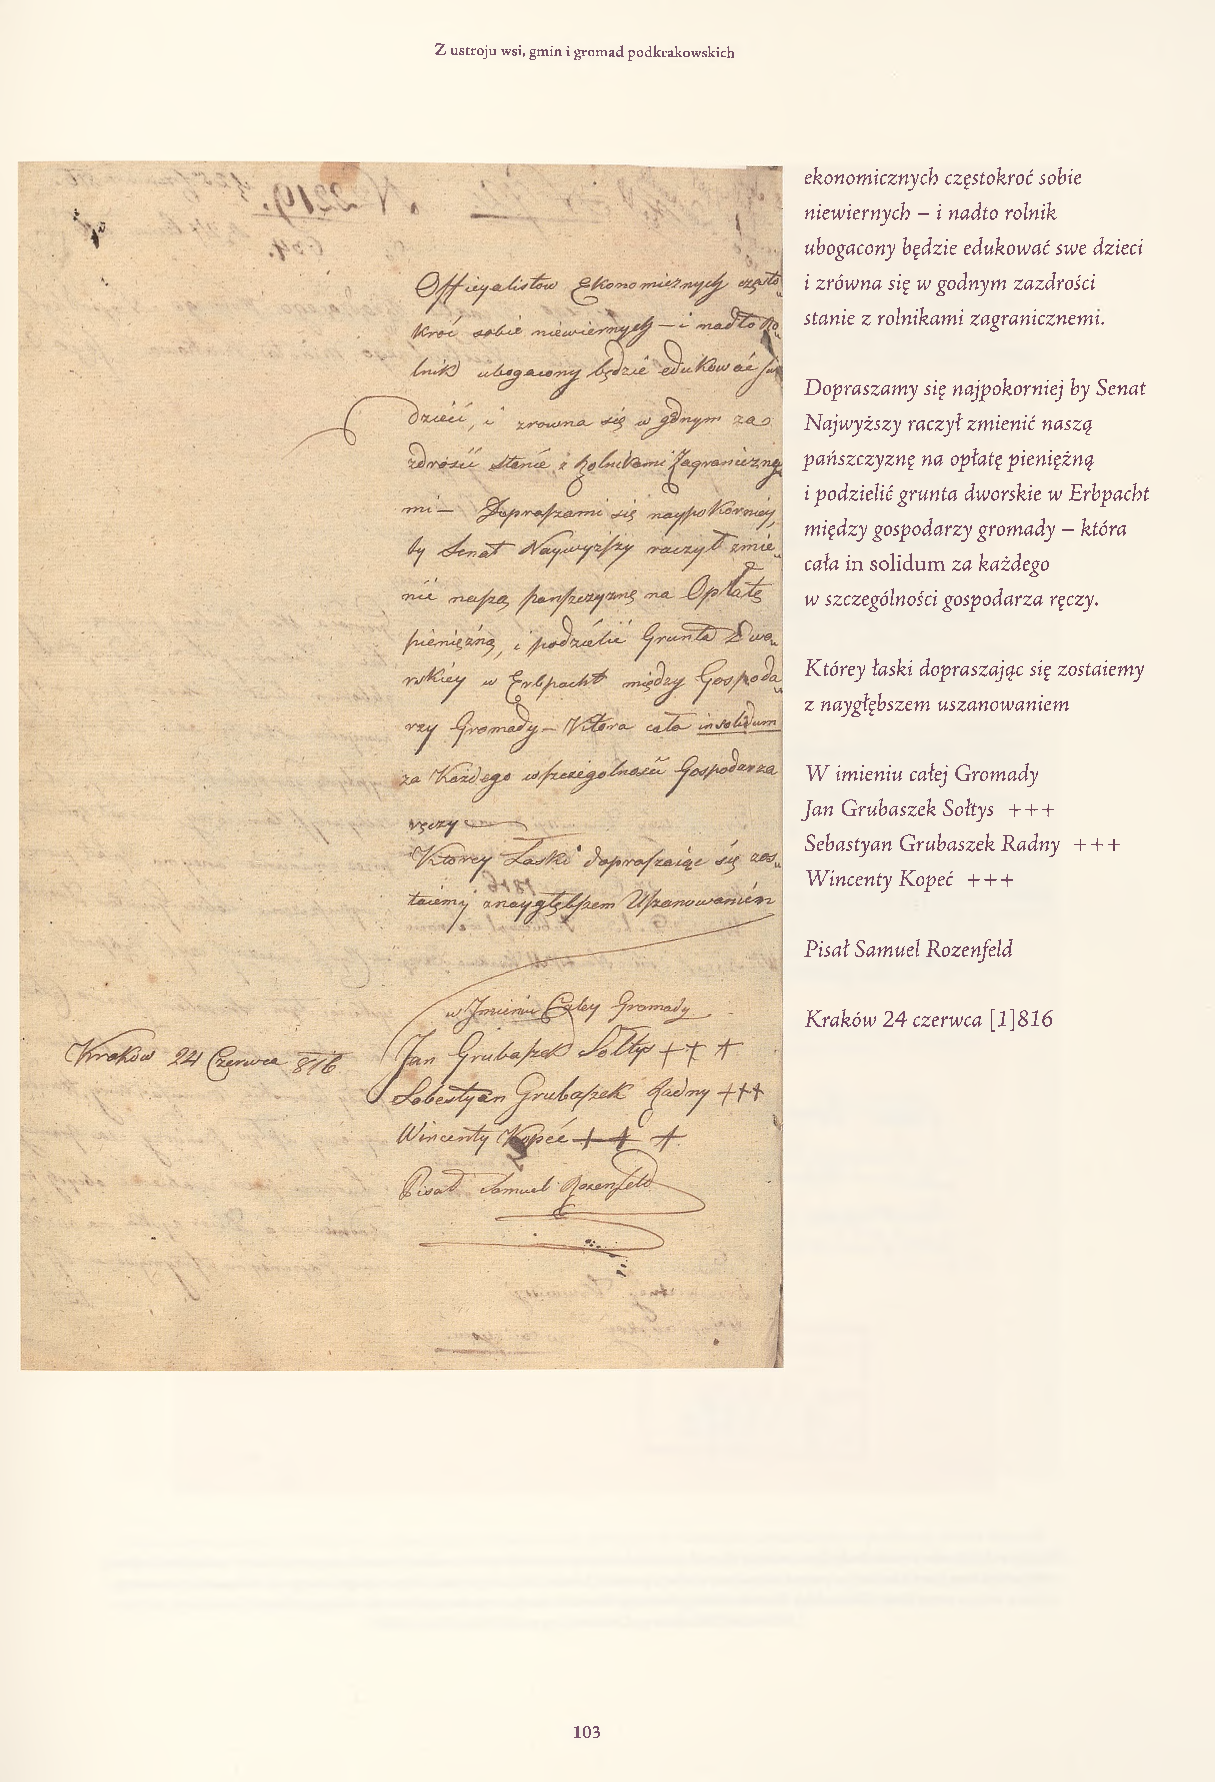 Z ustroju wsi, gmin i gromad podkrakowskich
Officyalistow Ekonomicznych często
kroć sobie niewiernych – i nadto Ro
lnik ubogacony będzie edukować
dzieci, i zrowna się w gdnym za
zdrości stanie z Rolnikami Zagraniczne
mi – Dopraszami się naypokorniey
by Senat Naywyższy raczył zmie
nić naszą panszczyznę na Opłatę
pieniężną, i podzielić Grunta Dwo
rskiey w Erbpacht między Gospoda
rzy Gromady – Ktora cała in solidum
za Każdego wszczegolności Gospodarza
ręczy
Ktorey Łaski dopraszaiąc się zos
taiemy znaygłębszem Uszanowaniem
w Jmieniu Całey Gromady
Kraków 24 Czerwca 816
Jan Grubaszek Sołtys +++
Sobestyan Grubaszek Radny +++
Wincenty Kopeć +++
Pisał Samuel Rozenfeld
ekonomicznych częstokroć sobie
niewiernych – i nadto rolnik
ubogacony będzie edukować swe dzieci
i zrówna się w godnym zazdrości
stanie z rolnikami zagranicznemi.
Dopraszamy się najpokorniej by Senat
Najwyższy raczył zmienić naszą
pańszczyznę na opłatę pieniężną
i podzielić grunta dworskie w Erbpacht
między gospodarzy gromady – która
cała in solidum za każdego
w szczególności gospodarza ręczy.
Którey łaski dopraszając się zostaiemy
z naygłębszem uszanowaniem
W imieniu całej Gromady
Jan Grubaszek Sołtys +++
Sebastyan Grubaszek Radny +++
Wincenty Kopeć +++
Pisał Samuel Rozenfeld
Kraków 24 czerwca [1]816
103